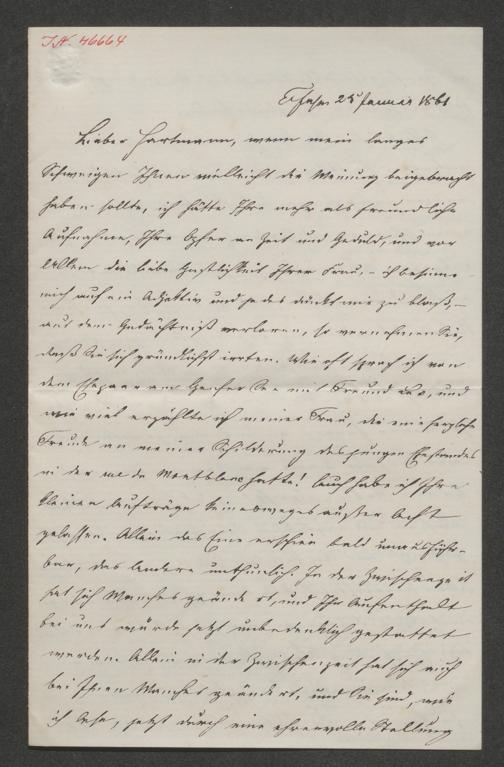 J.N. 46664
25 Januar 1861
Lieber Hartmann, wenn mein langes
Schweigen Ihnen vielleicht die Meinung beigebracht
haben sollte, ich hätte Ihre mehr als freundliche
Aufnahme, Ihre Opfer an Zeit und Geduld, und vor
Allem die liebe Gastlichkeit Ihrer Frau, – ich besinne
mich auf ein Adjektiv und jedes dünkt mir zu blaß, –
aus dem Gedächtniß verloren, so vernehmen Sie,
daß Sie sich gründlichst irrten. Wie oft sprach ich von
dem Ehepaar am Genfer See mit Freund und
wie viel erzählte ich meiner Frau, die eine herzliche
Freude an meiner Schilderung des jungen Ehestandes
in der rue de Montblanc hatte! Auch habe ich Ihre
kleinen Aufträge keineswegs außer Acht
gelassen. Allein das Eine erschien bald unausführ-
bar, das Andere unthunlich. In der Zwischenzeit
hat sich Manches geändert, und Ihr Aufenthalt
bei uns würde jetzt unbedenklich gestattet
werden. Allein in der Zwischenzeit hat sich auch
bei Ihnen Manches geändert, und Sie sind, wie
ich sehe, jetzt durch eine ehrenvolle Stellung